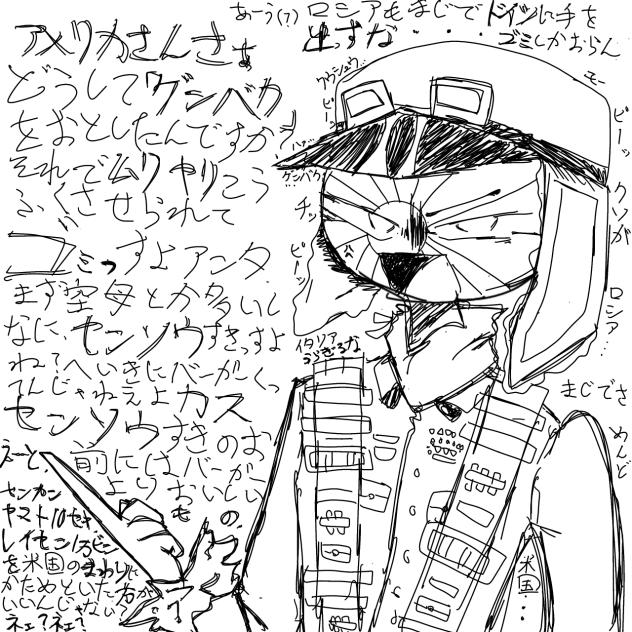 あーう(7)ロシアもまじでドイツに手を
出っすな・・・ゴミしかおらん
アメリカさんさぁ
どうしてゲンバク
をおとしたんですか
それでムリヤリこう
ふくさせられて
ゴミっすよアンタ
まず空母とか多いし
なに、センソウすきっすよ
ね?へいきにバーカくっ
てんじゃねえよカス
センソウすきのお
前にはバーガー
よりおいしい
もの、
えーと、
センカン
ヤマト10セキ
レイセン13ビン
を米国のまわりに
かためといた方が
いいんじゃない?
ネェ?ネェ?
クウシュウ
ピー
ゲンバク
チッ
ピーッ
イタリア
うらぎるな
エー
ピーッ
クソが
ロシア…
まじでさ
めんど
米国…